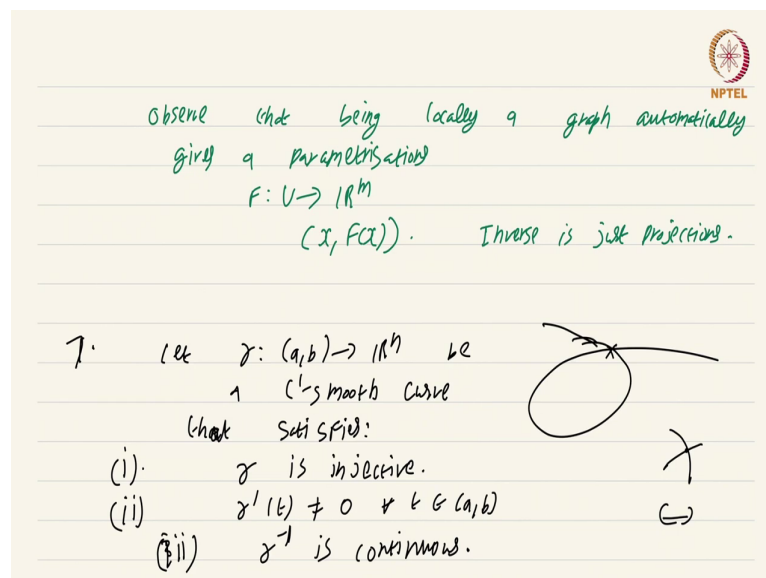 NPTEL
Observe that being locally a graph automatically
gives a parametrisations
F: U → ℝᵐ
(x, F(x)). Inverse is just projections.
7. Let γ: (a,b) → ℝⁿ be
a C¹-smooth curve
that satisfies:
(i). γ is injective.
(ii) γ'(t) ≠ 0 ∀ t ∈ (a,b)
(iii) γ⁻¹ is continuous.